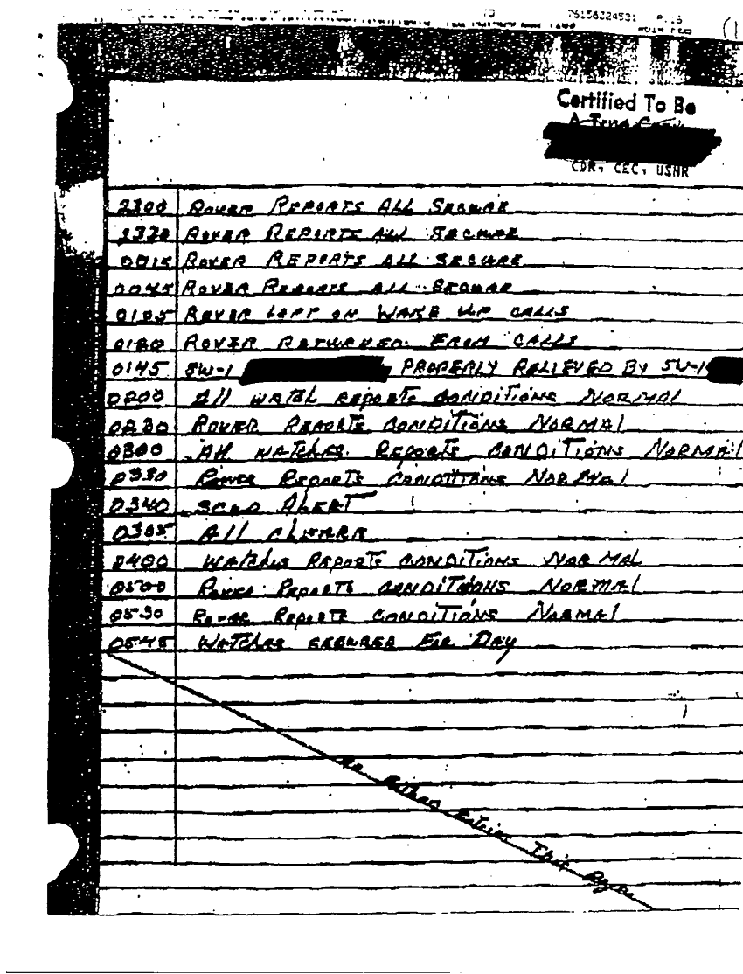 76158324531 P.15
Certified To Be
A True Copy
CDR, CEC, USNR
2300 ROVER REPORTS ALL SECURE
2330 ROVER REPORTS ALL SECURE
0015 ROVER REPORTS ALL SECURE
0045 ROVER REPORTS ALL SECURE
0105 ROVER LEFT ON WAKE UP CALLS
0130 ROVER RETURNED FROM CALLS
0145 SW-1 PROPERLY RELIEVED BY SW-1
0200 All WATCH REPORTS CONDITIONS NORMAL
0230 ROVER REPORTS CONDITIONS NORMAL
0300 All WATCHES REPORTS CONDITIONS NORMAL
0330 ROVER REPORTS CONDITIONS NORMAL
0340 SCUD ALERT
All
0400 WATCHES REPORTS CONDITIONS NORMAL
0500 ROVER REPORTS CONDITIONS NORMAL
0530 ROVER REPORTS CONDITIONS NORMAL
0545 WATCHES SECURED FOR DAY
No Further Entries This Page